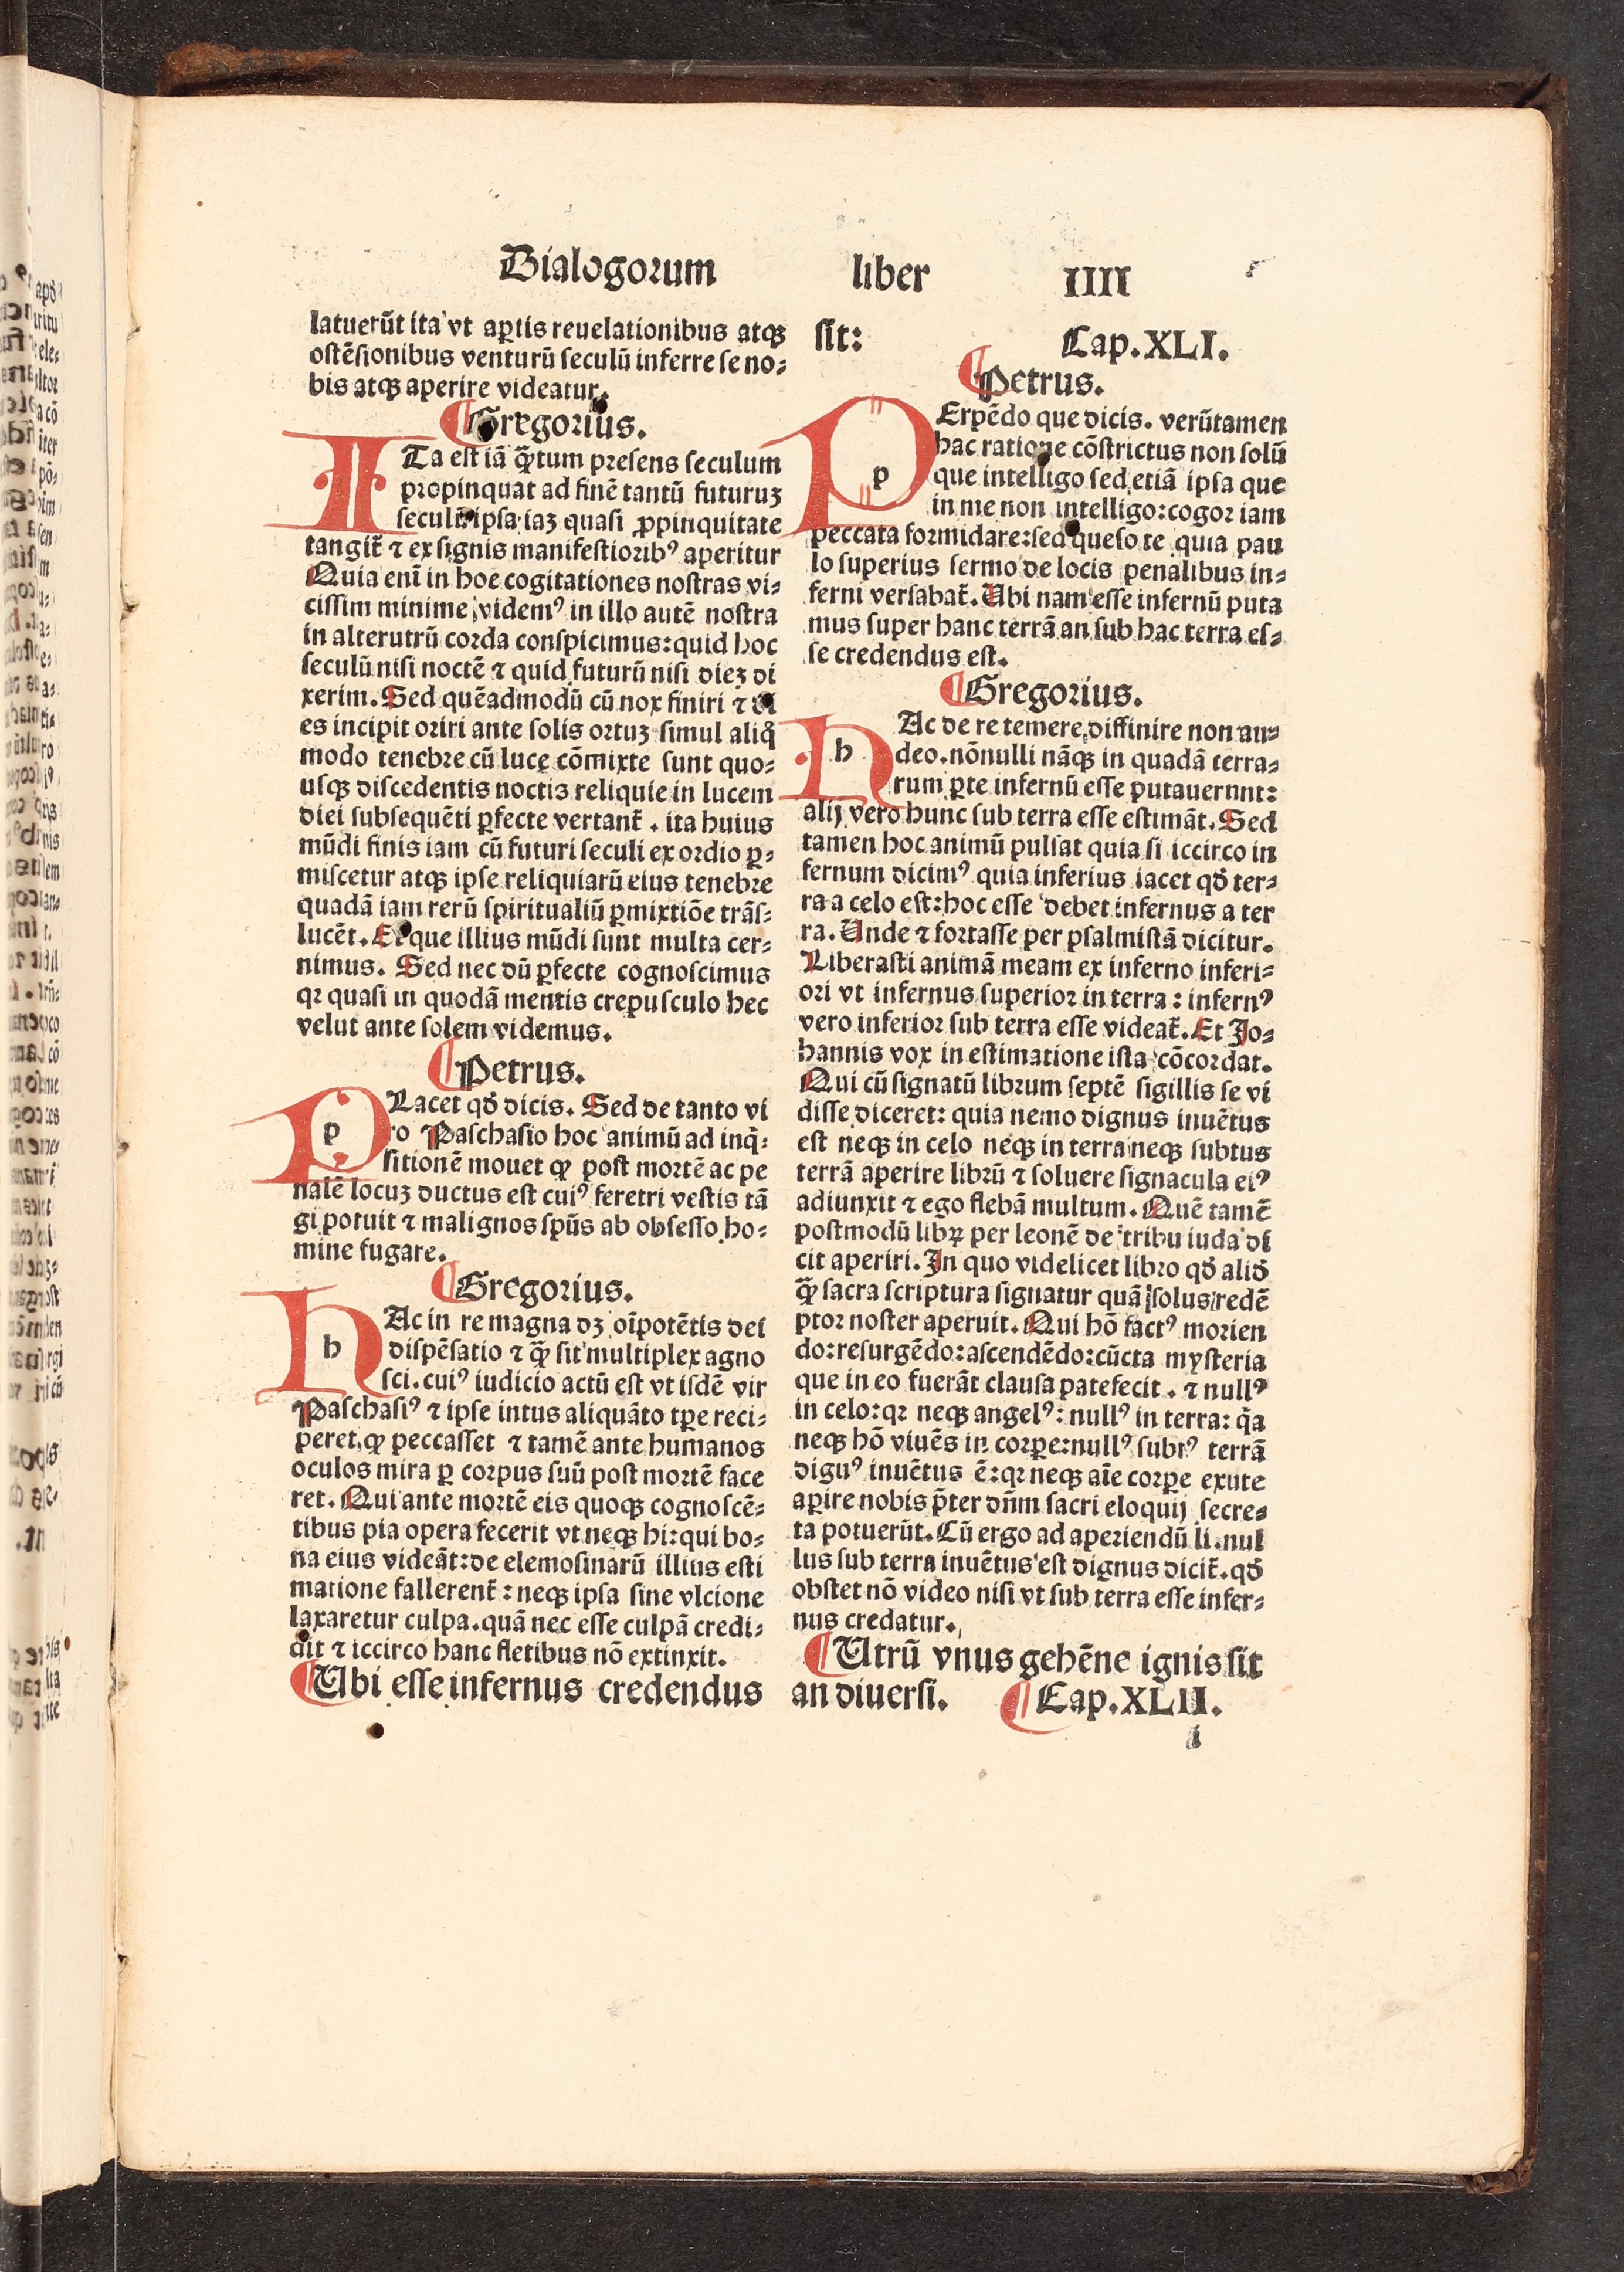 Dialogorum liber IIII
latuerūt ita vt aꝑtis reuelationibus atqꝫ
ostēsionibus venturū seculū inferre se no⸗
bis atqꝫ aperire videatur.
Gregorius.
ITa est iā q̄ꝫtum presens seculum
propinquat ad finē tantū futuruꝫ
seculū ipsa iaꝫ quasi ꝓpinquitate
tangit᷑ ⁊ ex signis manifestioribꝰ aperitur
Quia eni in hoc cogitationes nostras vi⸗
cissim minime videmꝰ in illo autē nostra
in alterutrū corda conspicimus: quid hoc
seculū nisi noctē ⁊ quid futurū nisi dieꝫ di
xerim. Sed quēadmodū cū nox finiri ⁊ di
es incipit oriri ante solis ortuꝫ simul aliq̊
modo tenebre cū luce cōmixte sunt quo⸗
usqꝫ discedentis noctis reliquie in lucem
diei subsequēti ꝑfecte vertant᷑. ita huius
mūdi finis iam cū futuri seculi ex ordio ꝑ⸗
miscetur atqꝫ ipse reliquiarū eius tenebre
quadā iam rerū spiritualiū ꝑmixtiōe trās⸗
lucēt. Et que illius mūdi sunt multa cer⸗
nimus. Sed nec dū ꝑfecte cognoscimus
qꝛ quasi in quodā mentis crepusculo hec
velut ante solem videmus.
Petrus.
p PLacet qd̄ dicis. Sed de tanto vi
ro Paschasio hoc animū ad inq̇⸗
sitionē mouet ꝙ post mortē ac pe
nalē locuꝫ ductus est cuiꝰ feretri vestis tā
gi potuit ⁊ malignos sp̄us ab obsesso ho⸗
mine fugare.
Gregorius.
h HAc in re magna dꝫ oīpotētis dei
dispēsatio ⁊ q̄ꝫ sit multiplex agno
sci. cuiꝰ iudicio actū est vt isdē vir
Paschasiꝰ ⁊ ipse intus aliquāto tp̄e reci⸗
peret ꝙ peccasset ⁊ tamē ante humanos
oculos mira ꝑ corpus suū post mortē face
ret. Qui ante mortē eis quoqꝫ cognoscē⸗
tibus pia opera fecerit vt neqꝫ hi: qui bo⸗
na eius videāt: de elemosinarū illius esti
matione fallerent᷑: neqꝫ ipsa sine vlcione
laxaretur culpa. quā nec esse culpā credi⸗
dit ⁊ iccirco hanc fletibus nō extinxit.
Ubi esse infernus credendus
sit: Cap. XLI.
Petrus.
p PErpēdo que dicis. verūtamen
hac ratione cōstrictus non solū
que intelligo sed etiā ipsa que
in me non intelligo: cogor iam
peccata formidare: sed queso te quia pau
lo superius sermo de locis penalibus in⸗
ferni versabat᷑. Ubi nam esse infernū puta
mus super hanc terrā an sub hac terra es⸗
se credendus est.
Gregorius.
h HAc de re temere diffinire non au⸗
deo. nōnulli nāqꝫ in quadā terra⸗
rum ꝑte infernū esse putauernnt:
alij vero hunc sub terra esse estimāt. Sed
tamen hoc animū pulsat quia si iccirco in
fernum dicimꝰ quia inferius iacet qd̄ ter⸗
ra a celo est: hoc esse debet infernus a ter
ra. Unde ⁊ fortasse per psalmistā dicitur.
Liberasti animā meam ex inferno inferi⸗
ori vt infernus superior in terra: infernꝰ
vero inferior sub terra esse videat᷑. Et Jo⸗
hannis vox in estimatione ista cōcordat.
Qui cū signatū librum septē sigillis se vi
disse diceret: quia nemo dignus inuētus
est neqꝫ in celo neqꝫ in terra neqꝫ subtus
terrā aperire librū ⁊ soluere signacula eiꝰ
adiunxit ⁊ ego flebā multum. Quē tamē
postmodū libꝝ per leonē de tribu iuda di
cit aperiri. In quo videlicet libro qd̄ alid̄
q̄ꝫ sacra scriptura signatur quā solus redē
ptor noster aperuit. Qui hō factꝰ morien
do: resurgēdo: ascendēdo: cūcta mysteria
que in eo fuerāt clausa patefecit. ⁊ nullꝰ
in celo: qꝛ neqꝫ angelꝰ: nullꝰ in terra: q̇a
neqꝫ hō viuēs in corꝑe: nullꝰ subtꝰ terrā
diguꝰ inuētus ē: qꝛ neqꝫ aīe corꝑe exute
aꝑire nobis p̄ter dn̄m sacri eloquij secre⸗
ta potuerūt. Cū ergo ad aperiendū li. nul
lus sub terra inuētus est dignus dicit᷑. qd̄
obstet nō video nisi vt sub terra esse infer⸗
nus credatur.
Utrū vnus gehēne ignis sit
an diuersi. Cap. XLII.